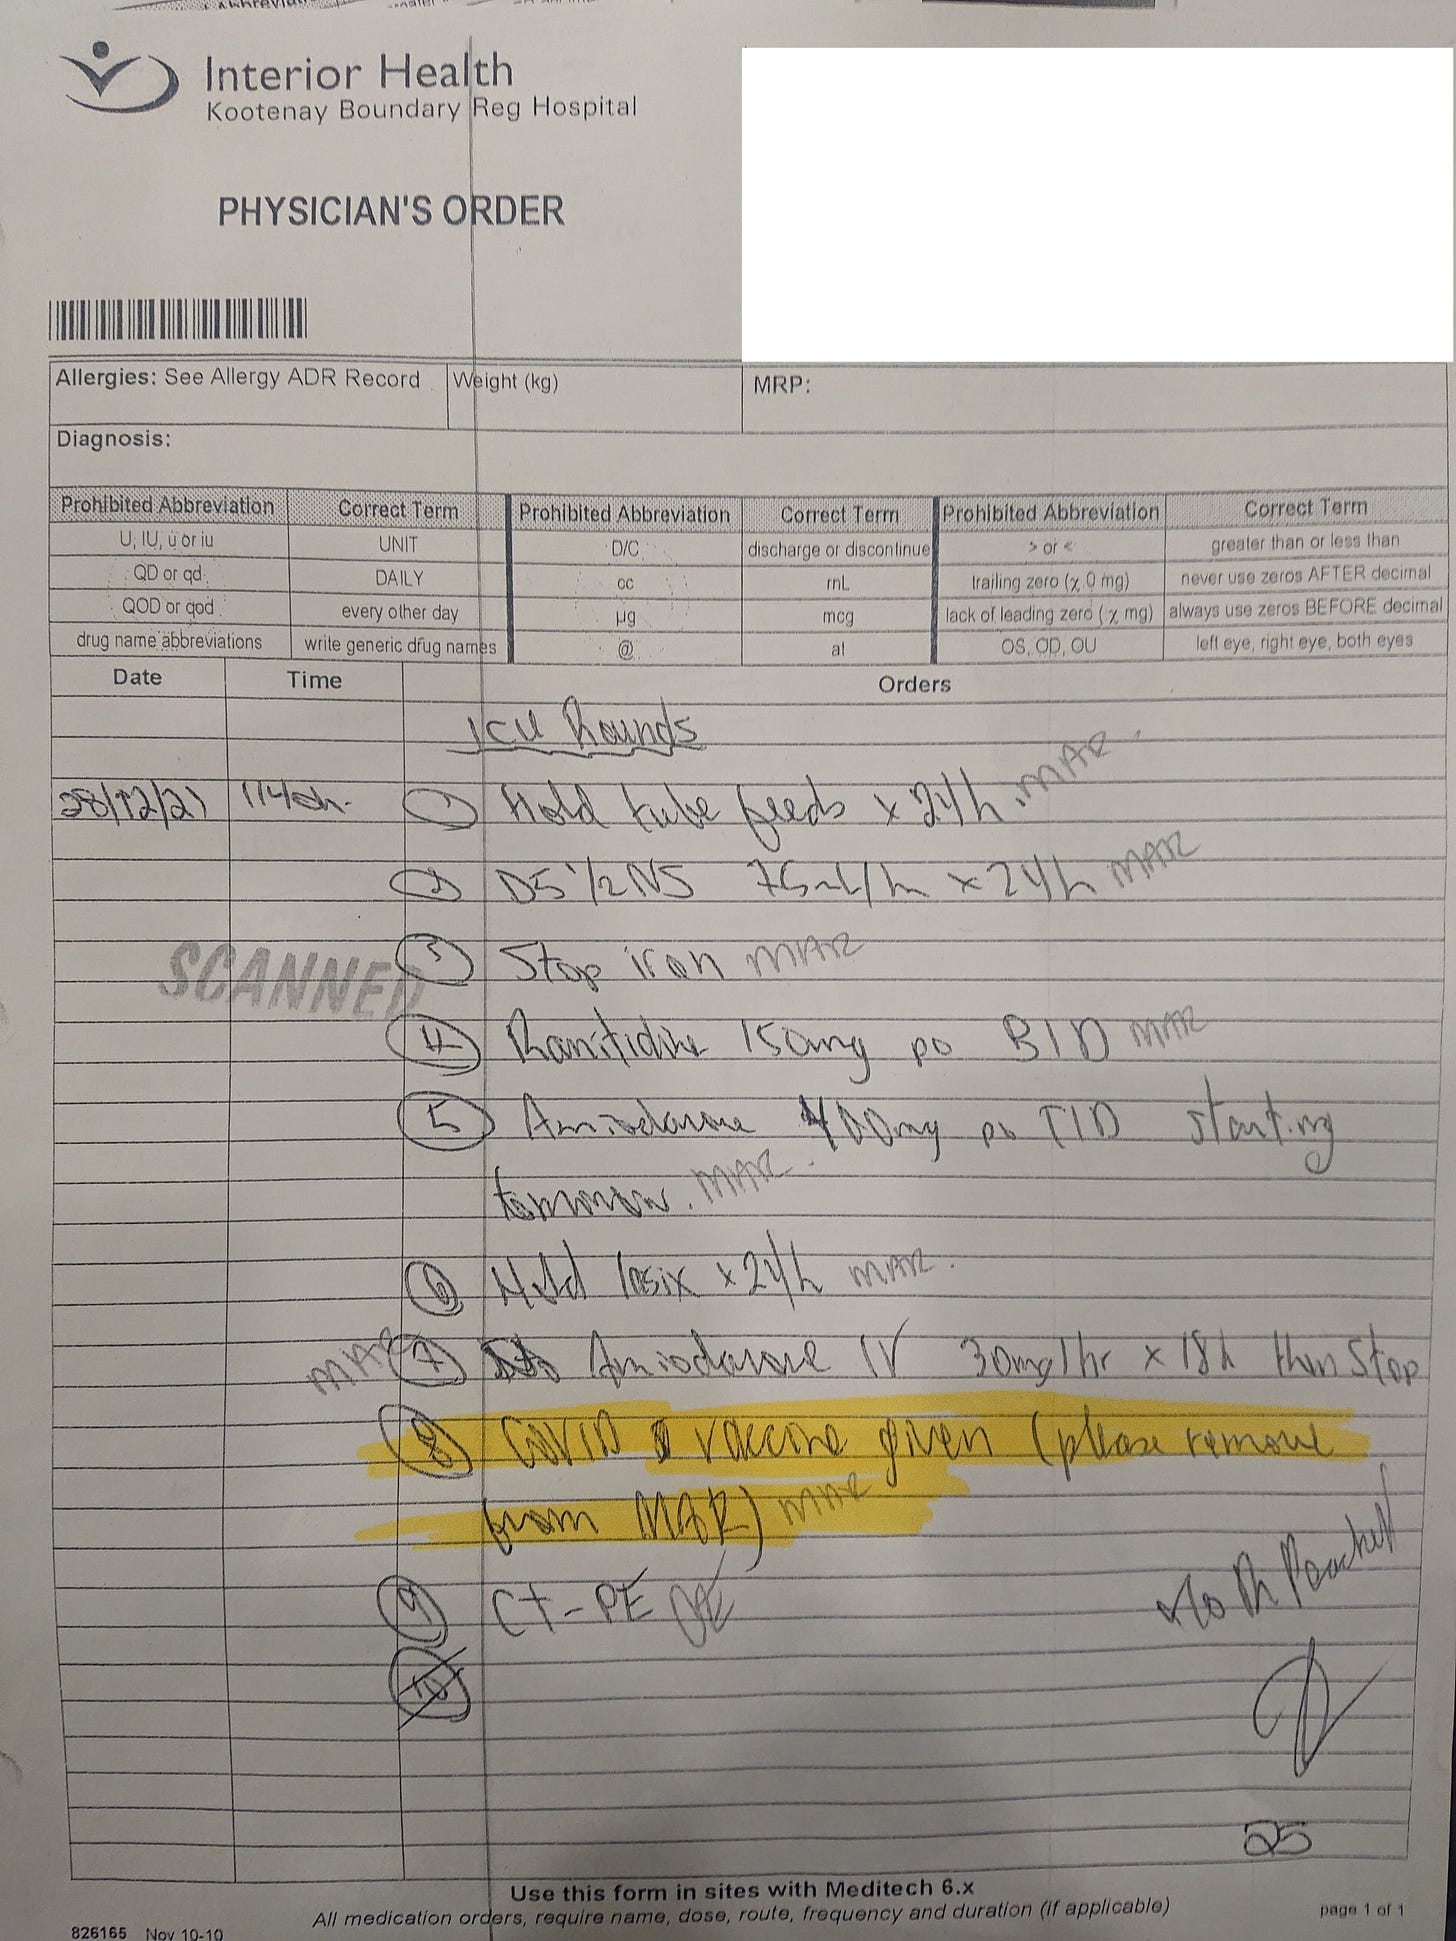 Interior Health
Kootenay Boundary Reg Hospital
PHYSICIAN'S ORDER
Allergies: See Allergy ADR Record Weight (kg) MRP:
Diagnosis:
Prohibited Abbreviation Correct Term Prohibited Abbreviation Correct Term Prohibited Abbreviation Correct Term
U, IU, u or iu UNIT D/C discharge or discontinue > or < greater than or less than
QD or qd DAILY cc mL trailing zero (χ.0 mg) never use zeros AFTER decimal
QOD or qod every other day µg mcg lack of leading zero (χ mg) always use zeros BEFORE decimal
drug name abbreviations write generic drug names @ at OS, OD, OU left eye, right eye, both eyes
Date Time Orders
ICU Rounds
28/12/21 1140h. 1 Hold tube feeds x 24h. MAR.
2 D5 1/2 NS 75mL/hr x 24h MAR
SCANNED 3 Stop iron MAR
4 Ranitidine 150mg po BID MAR
5 Amiodarone 400mg po TID starting
tomorrow. MAR.
6 Hold lasix x 24h MAR.
MAR 7 Amiodarone IV 30mg/hr x 18h then stop
8 COVID vaccine given (please remove
from MAR) MAR
9 CT-PE OE
10
25
Use this form in sites with Meditech 6.x
All medication orders, require name, dose, route, frequency and duration (if applicable)
826165 Nov 10-10 page 1 of 1